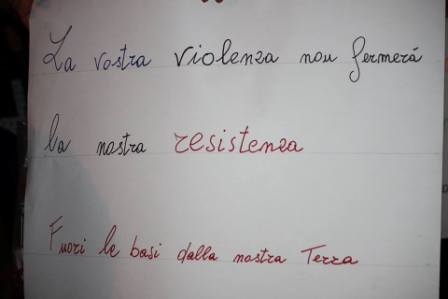 La vostra violenza non fermerà
la nostra resistenza
Fuori le basi dalla nostra Terra